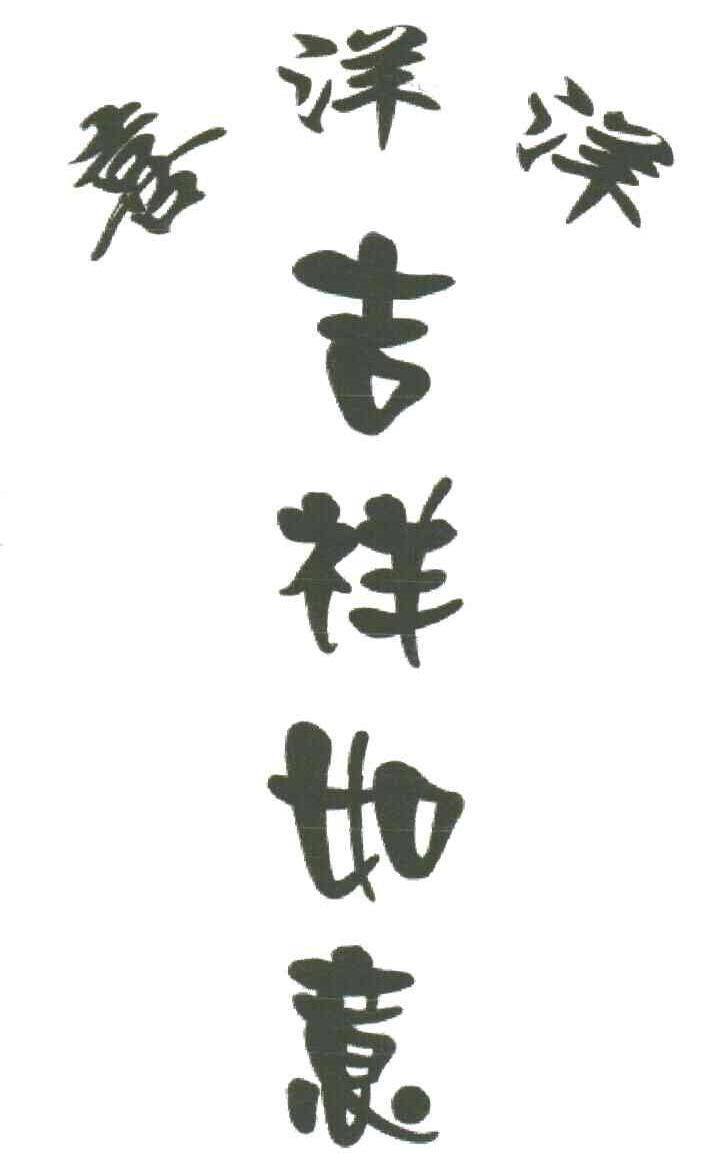 喜洋洋
吉祥如意